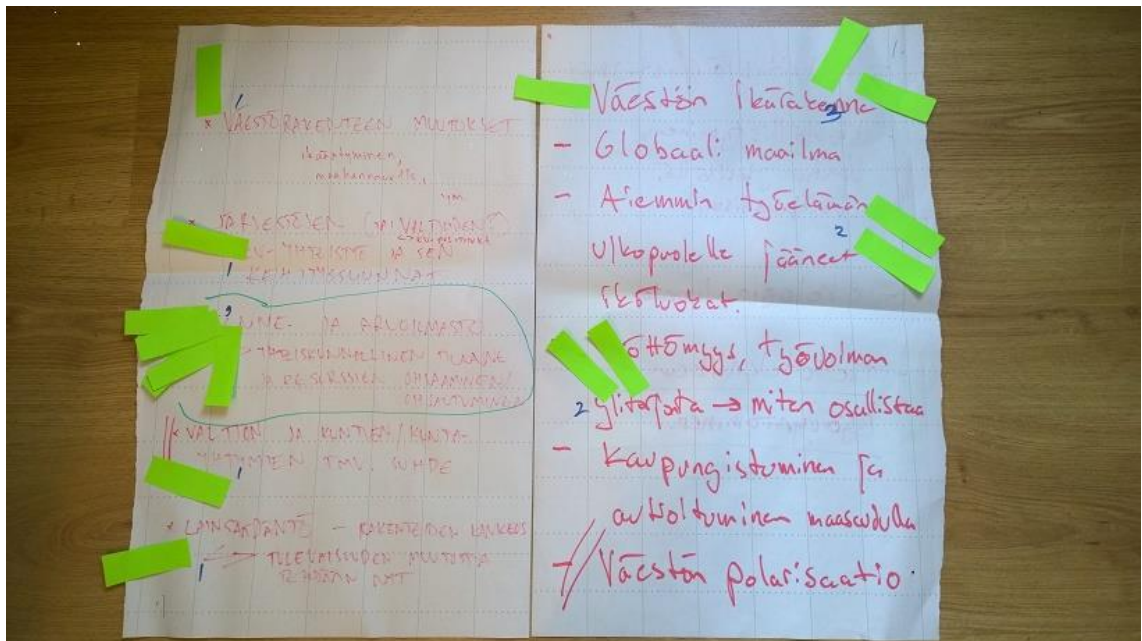 * VÄESTÖRAKENTEEN MUUTOKSET
ikääntyminen,
maahanmuutto,
ym.
* JÄRJESTÖJEN (JA VALTIOIDEN?)
YHTEISTYÖ JA SEN
KEHITYSSUUNNAT
1
JA ARVOILMASTO
YHTEISKUNNALLINEN TILANNE
JA RESURSSIEN OHJAAMINEN/
OHJAUTUMINEN
* VALTION JA KUNTIEN/KUNTA-
YHTYMIEN TMV. SUHDE
1
* LAINSÄÄDÄNTÖ - RAKENTEIDEN KANKEUS
TULEVAISUUDEN MUUTOKSIA
1 TEHDÄÄN NYT
1.
Väestön ikärakenne
3
- Globaali maailma
- Aiemmin työelämän
2
ulkopuolelle jääneet
ikäluokat.
työvoiman
2 ylitarjonta → miten osallistaa
- Kaupungistuminen ja
autioituminen maaseudulla
- Väestön polarisaatio